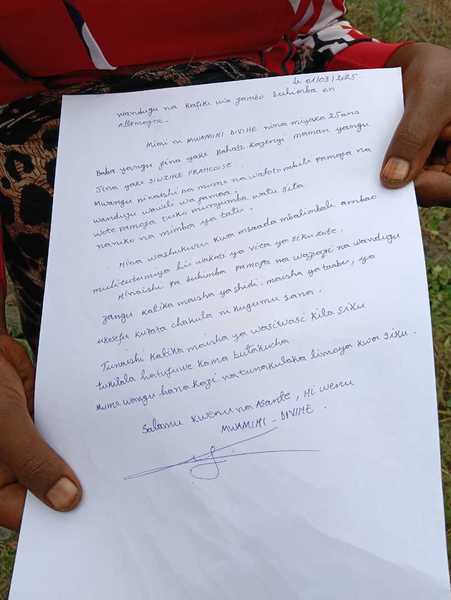 le 01/03/2025
wandugu na Rafiki wa Jambo Buhimba en
Allemagne.
Mimi ni MWAMINI DIVINE nina miyaka 25 ans
Baba yangu jina yake Bahati Kagenyi maman yangu
Jina yake SIUZIKE FRANCOISE.
Mwangu ninaishi na mume na watoto mbili pamoja na
wandugu wawili wa jamaa.
wote pamoja tuko munyumba watu sita
naniko na mimba ya tatu.
Nina washukuru kwa msaada mbalimbali ambao
mulitutumiya hii wakati ya vita ya sekurite.
Ninaishi pa Buhimba pamoja na wazazi na wandugu
zangu katika maisha ya shidi, maisha ya taabu, ya
ukosefu kutata chakula ni kugumu sana.
Tunaishi katika maisha ya wasiwasi kila siku
tukilala hatujuwe kama tutakucha.
Mume wangu hana kazi na tunakulaka limoya kwa siku.
Salamu kwenu na Asante, Ni wenu
MWAMINI - DIVINE.